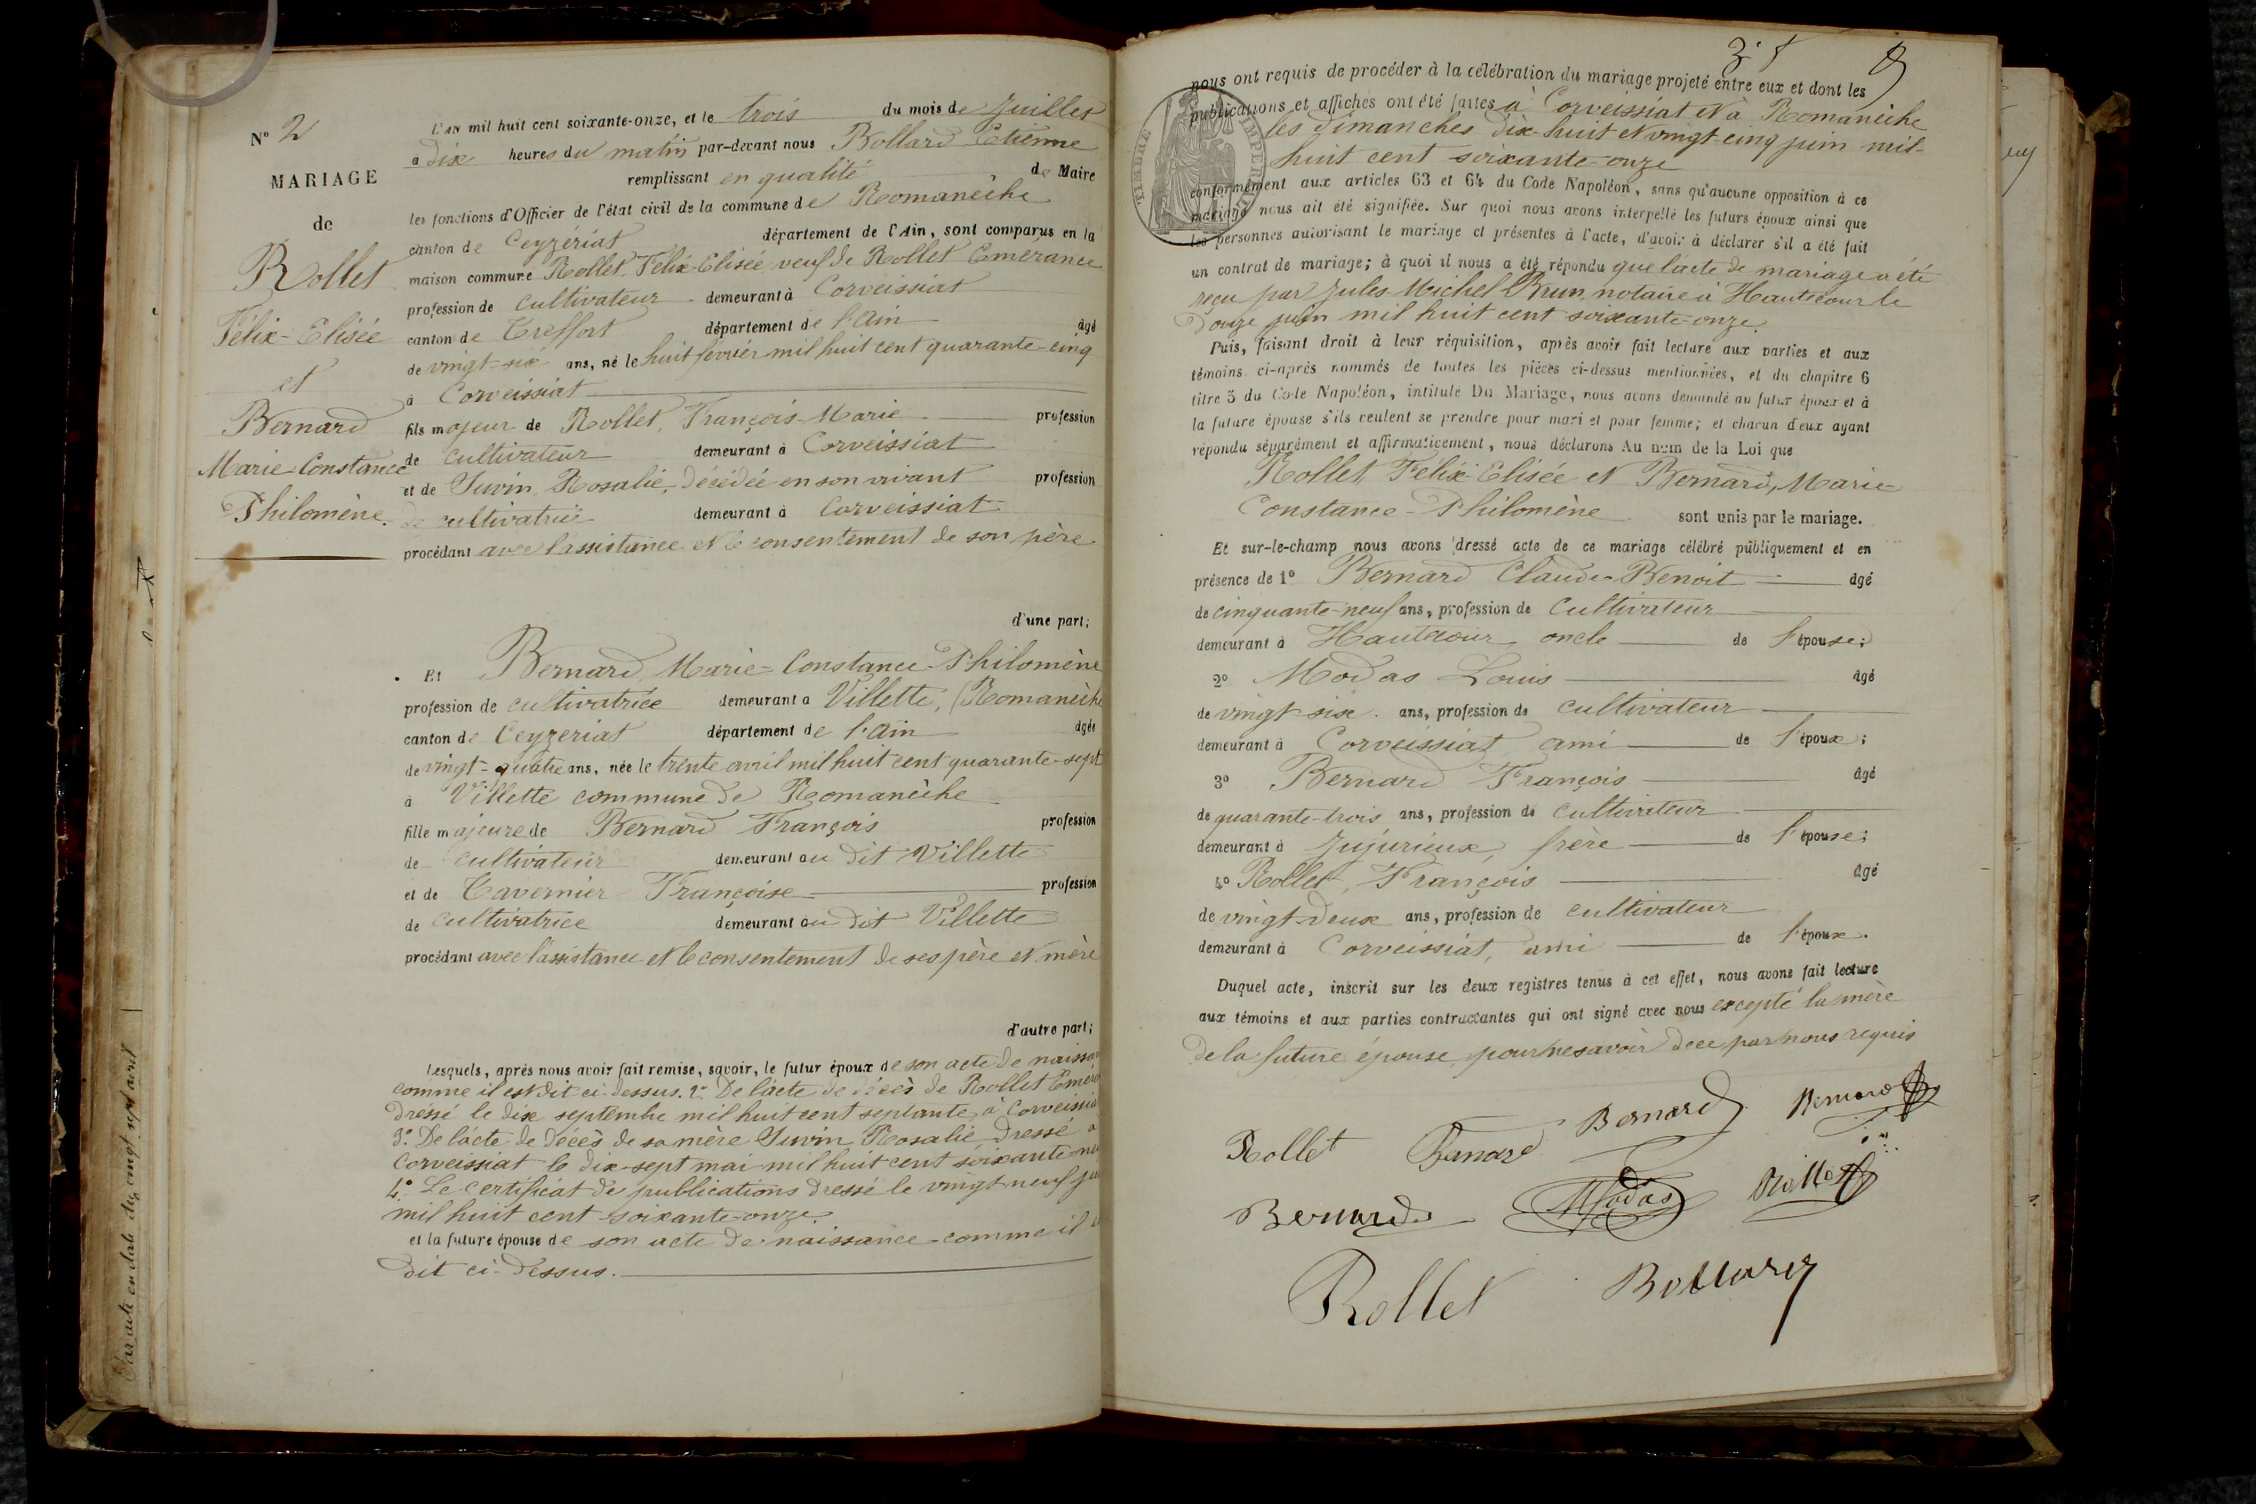 N° 2
MARIAGE
de
Rollet
Félix-Elisée
et
Bernard
Marie-Constance
Philomène.
L'AN mil huit cent soixante-onze, et le trois du mois de Juillet
à dix heures du matin par-devant nous Bollard Etienne
remplissant en qualité de Maire
les fonctions d'Officier de l'état civil de la commune de Romanèche
canton de Ceyzériat département de l'Ain, sont comparus en la
maison commune Rollet, Félix-Elisée veuf de Rollet Emérance
profession de cultivateur demeurant à Corveissiat
canton de Treffort département de l'Ain âgé
de vingt-six ans, né le huit février mil huit cent quarante-cinq
à Corveissiat
fils majeur de Rollet, François-Marie profession
de cultivateur demeurant à Corveissiat
et de Juvin, Rosalie, décédée en son vivant profession
de cultivatrice demeurant à Corveissiat
procédant avec l'assistance et le consentement de son père
d'une part;
Et Bernard, Marie-Constance-Philomène
profession de cultivatrice demeurant à Villette, (Romanèche
canton de Ceyzeriat département de l'Ain âgée
de vingt-quatre ans, née le trente avril mil huit cent quarante-sept
à Villette commune de Romanèche
fille majeure de Bernard François profession
de cultivateur demeurant au dit Villette
et de Tavernier Françoise profession
de cultivatrice demeurant au dit Villette
procédant avec l'assistance et le consentement de ses père et mère
d'autre part;
Lesquels, après nous avoir fait remise, savoir, le futur époux de son acte de
comme il est dit ci-dessus. 2° De l'acte de décès de Rollet
dressé le dix septembre mil huit cent septante à
3° De l'acte de décès de sa mère Juvin Rosalie dressé à
Corveissiat le dix-sept mai mil huit cent
4° Le certificat de publications dressé le vingt neuf
mil huit cent soixante-onze.
et la future épouse de son acte de naissance comme il
dit ci-dessus.
nous ont requis de procéder à la célébration du mariage projeté entre eux et dont les
publications et affiches ont été faites à Corveissiat et à Romanèche
les dimanches dix-huit et vingt-cinq juin mil-
huit cent soixante-onze
conformément aux articles 63 et 64 du Code Napoléon, sans qu'aucune opposition à ce
mariage nous ait été signifiée. Sur quoi nous avons interpellé les futurs époux ainsi que
les personnes autorisant le mariage et présentes à l'acte, d'avoir à déclarer s'il a été fait
un contrat de mariage; à quoi il nous a été répondu que l'acte de mariage a été
reçu par Jules Michel Brun, notaire à Hautecour le
douze juin mil huit cent soixante-onze.
Puis, faisant droit à leur réquisition, après avoir fait lecture aux parties et aux
témoins ci-après nommés de toutes les pièces ci-dessus mentionnées, et du chapitre 6
titre 5 du Code Napoléon, intitulé Du Mariage, nous avons demandé au futur époux et à
la future épouse s'ils veulent se prendre pour mari et pour femme; et chacun d'eux ayant
répondu séparément et affirmativement, nous déclarons Au nom de la Loi que
Rollet Félix-Elisée et Bernard, Marie-
Constance-Philomène sont unis par le mariage.
Et sur-le-champ nous avons dressé acte de ce mariage célébré publiquement et en
présence de 1° Bernard Claude-Benoit âgé
de cinquante-neuf ans, profession de cultivateur
demeurant à Hautecour oncle de l'épouse;
2° Modas Louis âgé
de vingt-six ans, profession de cultivateur
demeurant à Corveissiat ami de l'époux;
3° Bernard François âgé
de quarante-trois ans, profession de cultivateur
demeurant à Jujurieux, frère de l'épouse;
4° Rollet, François âgé
de vingt-deux ans, profession de cultivateur
demeurant à Corveissiat, ami de l'époux.
Duquel acte, inscrit sur les deux registres tenus à cet effet, nous avons fait lecture
aux témoins et aux parties contractantes qui ont signé avec nous excepté la mère
de la future épouse pour ne savoir de ce par nous requis
Rollet Bernard Bernard Bernard
Bernard Modas Rollet
Rollet Bollard